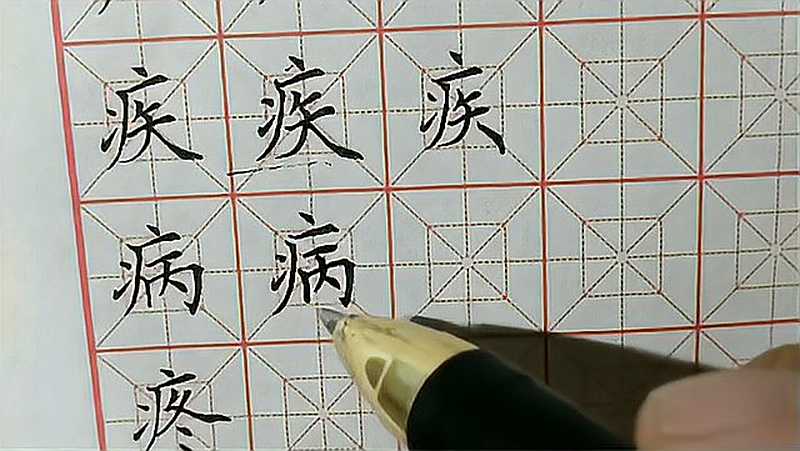 疾疾疾
病病
疼